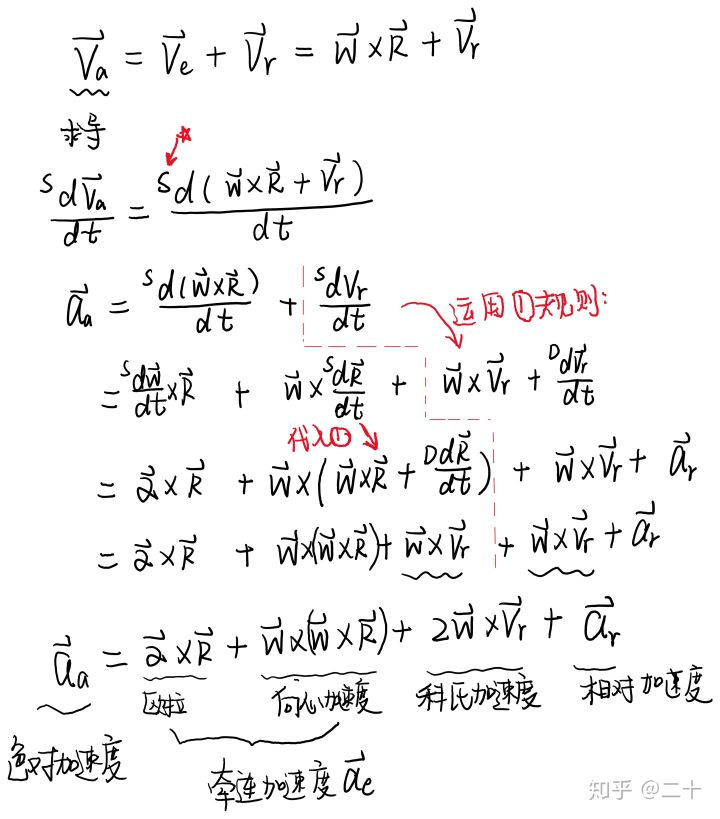 V⃗a = V⃗e + V⃗r = w⃗ × R⃗ + V⃗r
求导
☆
ˢdV⃗a/dt = ˢd(w⃗×R⃗ + V⃗r)/dt
a⃗a = ˢd(w⃗×R⃗)/dt + ˢdVr/dt 运用①规则:
= ˢdw⃗/dt × R⃗ + w⃗ × ˢdR⃗/dt + w⃗×V⃗r + ᴰdV⃗r/dt
代入①
= α⃗ × R⃗ + w⃗ × (w⃗×R⃗ + ᴰdR⃗/dt) + w⃗×V⃗r + a⃗r
= α⃗ × R⃗ + w⃗×(w⃗×R⃗) + w⃗×V⃗r + w⃗×V⃗r + a⃗r
a⃗a = α⃗ × R⃗ + w⃗×(w⃗×R⃗) + 2w⃗×V⃗r + a⃗r
欧拉 向心加速度 科氏加速度 相对加速度
绝对加速度
牵连加速度 a⃗e
知乎 @二十